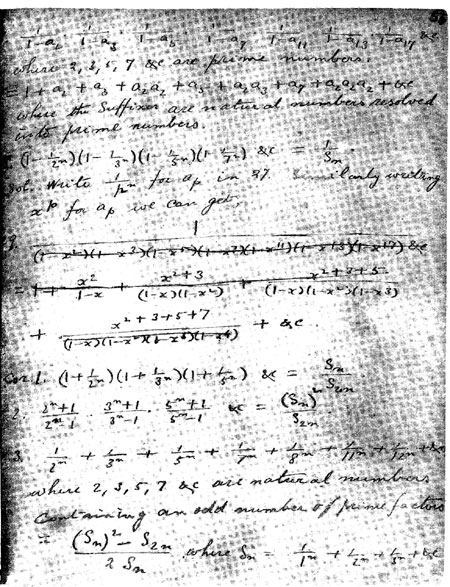 1/(1-a₂) · 1/(1-a₃) · 1/(1-a₅) · 1/(1-a₇) · 1/(1-a₁₁) · 1/(1-a₁₃) · 1/(1-a₁₇) &c
where 2, 3, 5, 7 &c are prime numbers.
= 1 + a₂ + a₃ + a₂a₂ + a₅ + a₂a₃ + a₇ + a₂a₂a₂ + &c
where the suffixes are natural numbers resolved
into prime numbers.
(1 - 1/2ⁿ)(1 - 1/3ⁿ)(1 - 1/5ⁿ)(1 - 1/7ⁿ) &c = 1/Sₙ
Sol. Write 1/pⁿ for aₚ in 37. Similarly writing
xᵖ for aₚ we can get,
1/((1-x²)(1-x³)(1-x⁵)(1-x⁷)(1-x¹¹)(1-x¹³)(1-x¹⁷) &c)
= 1 + x²/(1-x) + x²⁺³/((1-x)(1-x²)) + x²⁺³⁺⁵/((1-x)(1-x²)(1-x³))
+ x²⁺³⁺⁵⁺⁷/((1-x)(1-x²)(1-x³)(1-x⁴)) + &c
Cor. 1. (1 + 1/2ⁿ)(1 + 1/3ⁿ)(1 + 1/5ⁿ) &c = Sₙ/S₂ₙ
2. (2ⁿ+1)/(2ⁿ-1) · (3ⁿ+1)/(3ⁿ-1) · (5ⁿ+1)/(5ⁿ-1) &c = (Sₙ)²/S₂ₙ
3. 1/2ⁿ + 1/3ⁿ + 1/5ⁿ + 1/7ⁿ + 1/8ⁿ + 1/11ⁿ + 1/12ⁿ + &c
where 2, 3, 5, 7 &c are natural numbers
containing an odd number of prime factors
= ((Sₙ)² - S₂ₙ)/(2 Sₙ) where Sₙ = 1/1ⁿ + 1/2ⁿ + 1/3ⁿ + &c